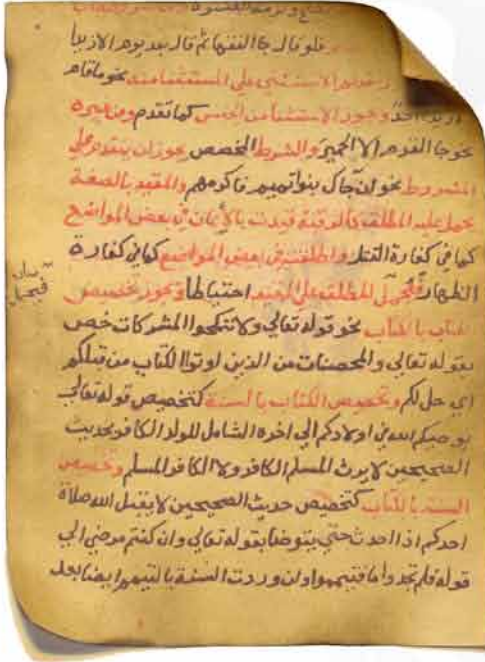 فلو قال جا الفقها ثم قال بعد يوم الا زيدا
الاستثنى على المستثنا منه نحو ما قام
الا زيدا احد وتجوز الاستثنا من الجنس كما تقدم ومن غيره
نحو جا القوم الا الحمير والشرط المخصص يجوز ان يتقدم على
المشروط نحو ان جاك بنوا تميم فاكرمهم والمقيد بالصفة
يحمل عليه المطلق كالرقبة قيدت بالأيمان في بعض المواضع
كما في كفارة القتل واطلقت في بعض المواضع كما في كفارة
الظهار فيحمل المطلق على المقيد احتياطا ويجوز تخصيص
الكتاب بالكتاب نحو قوله تعالى ولا تنكحوا المشركات خص
بقوله تعالى والمحصنات من الذين اوتوا الكتاب من قبلكم
اي حل لكم وتخصيص الكتاب بالسنة كتخصيص قوله تعالى
يوصيكم الله في اولادكم الى اخره الشامل للولد الكافر بحديث
الصحيحين لا يرث المسلم الكافر ولا الكافر المسلم وتخصيص
السنة بالكتاب كتخصيص حديث الصحيحين لا يقبل الله صلاة
احدكم اذا احدث حتى يتوضا بقوله تعالى وان كنتم مرضي الى
قوله فلم تجدوا ما فتيمموا وان وردت السنة بالتيمم ايضا بعد